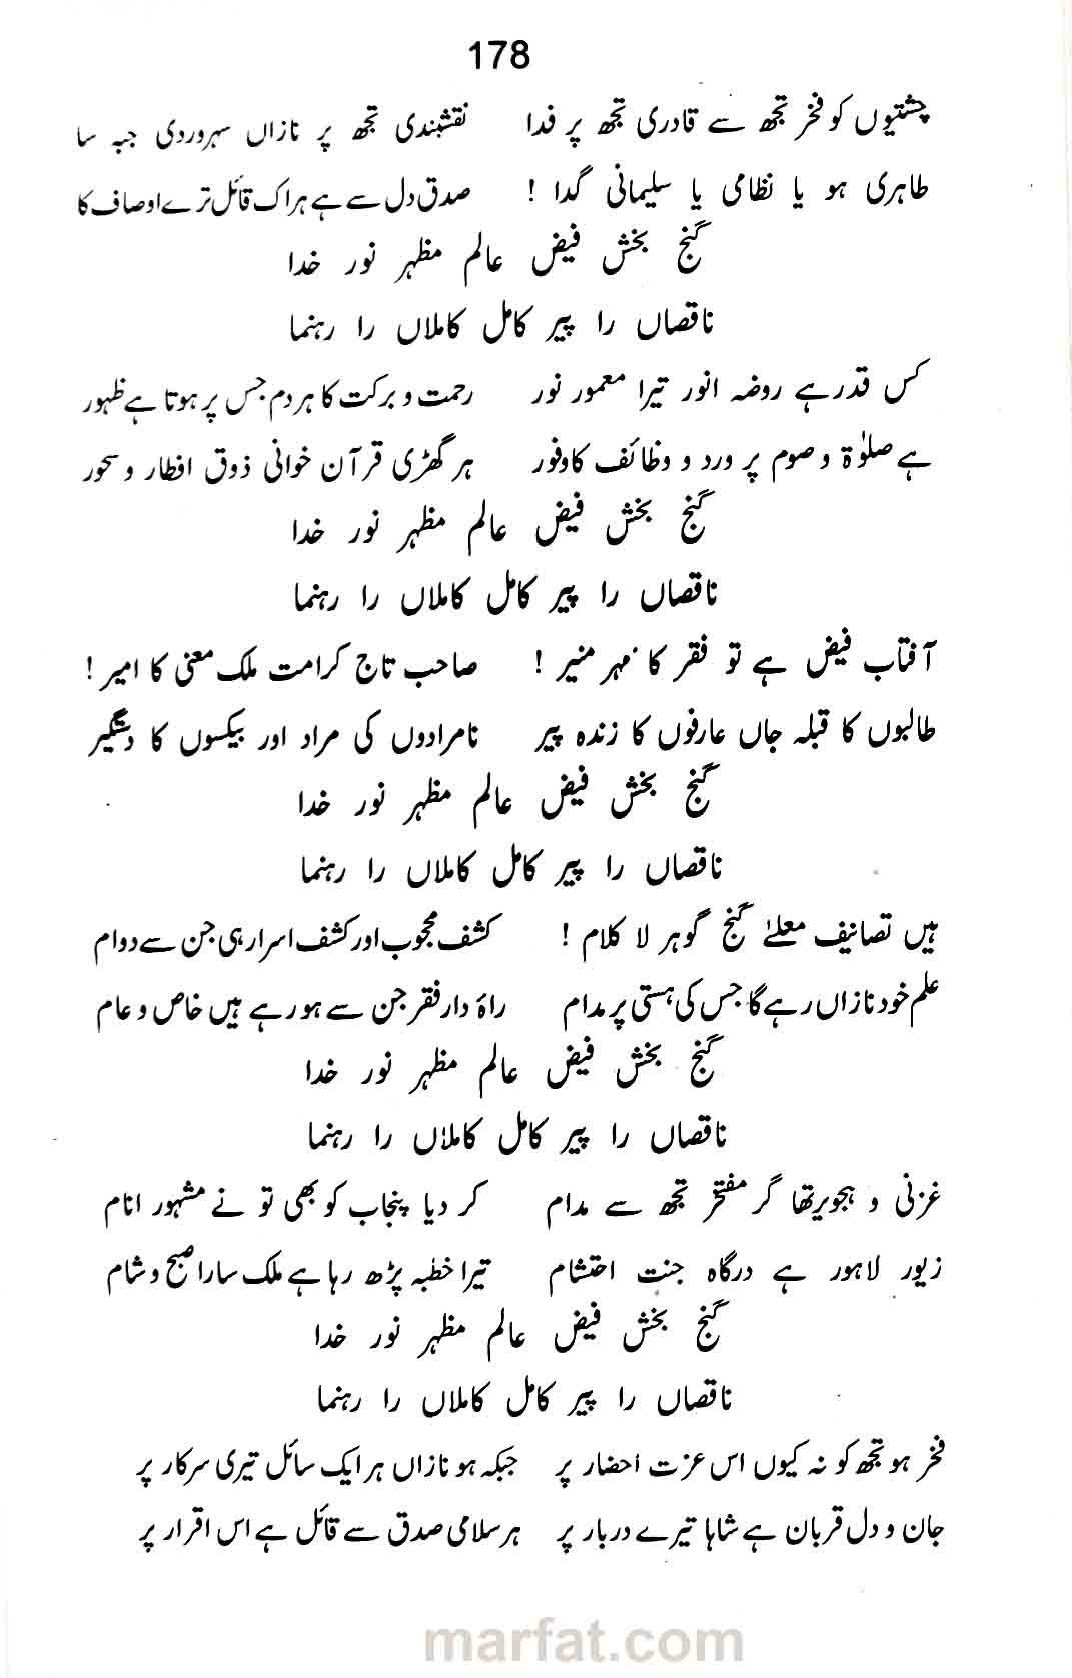 178
چشتیوں کو فخر تجھ سے قادری تجھ پر فدا نقشبندی تجھ پر نازاں سہروردی جبہ سا
طاہری ہو یا نظامی یا سلیمانی گدا ! صدق دل سے ہے ہر اک قائل ترے اوصاف کا
گنج بخش فیض عالم مظہر نور خدا
ناقصاں را پیر کامل کاملاں را رہنما
کس قدر ہے روضہ انور تیرا معمور نور رحمت و برکت کا ہر دم جس پر ہوتا ہے ظہور
ہے صلوٰۃ و صوم پر ورد و وظائف کا وفور ہر گھڑی قرآن خوانی ذوق افطار و سحور
گنج بخش فیض عالم مظہر نور خدا
ناقصاں را پیر کامل کاملاں را رہنما
آفتاب فیض ہے تو فقر کا مہر منیر ! صاحب تاج کرامت ملک معنی کا امیر !
طالبوں کا قبلہ جاں عارفوں کا زندہ پیر نامرادوں کی مراد اور بیکسوں کا دستگیر
گنج بخش فیض عالم مظہر نور خدا
ناقصاں را پیر کامل کاملاں را رہنما
ہیں تصانیف معلےٰ گنج گوہر لا کلام ! کشف محجوب اور کشف اسرار ہی جن سے دوام
علم خود نازاں رہے گا جس کی ہستی پر مدام راۂ دار فقر جن سے ہو رہے ہیں خاص و عام
گنج بخش فیض عالم مظہر نور خدا
ناقصاں را پیر کامل کاملاں را رہنما
غزنی و ہجویر تھا گر مفتخر تجھ سے مدام کر دیا پنجاب کو بھی تو نے مشہور انام
زیور لاہور ہے درگاہ جنت احتشام تیرا خطبہ پڑھ رہا ہے ملک سارا صبح و شام
گنج بخش فیض عالم مظہر نور خدا
ناقصاں را پیر کامل کاملاں را رہنما
فخر ہو تجھ کو نہ کیوں اس عزت احضار پر جبکہ ہو نازاں ہر ایک سائل تیری سرکار پر
جان و دل قربان ہے شاہا تیرے دربار پر ہر سلامی صدق سے قائل ہے اس اقرار پر
marfat.com